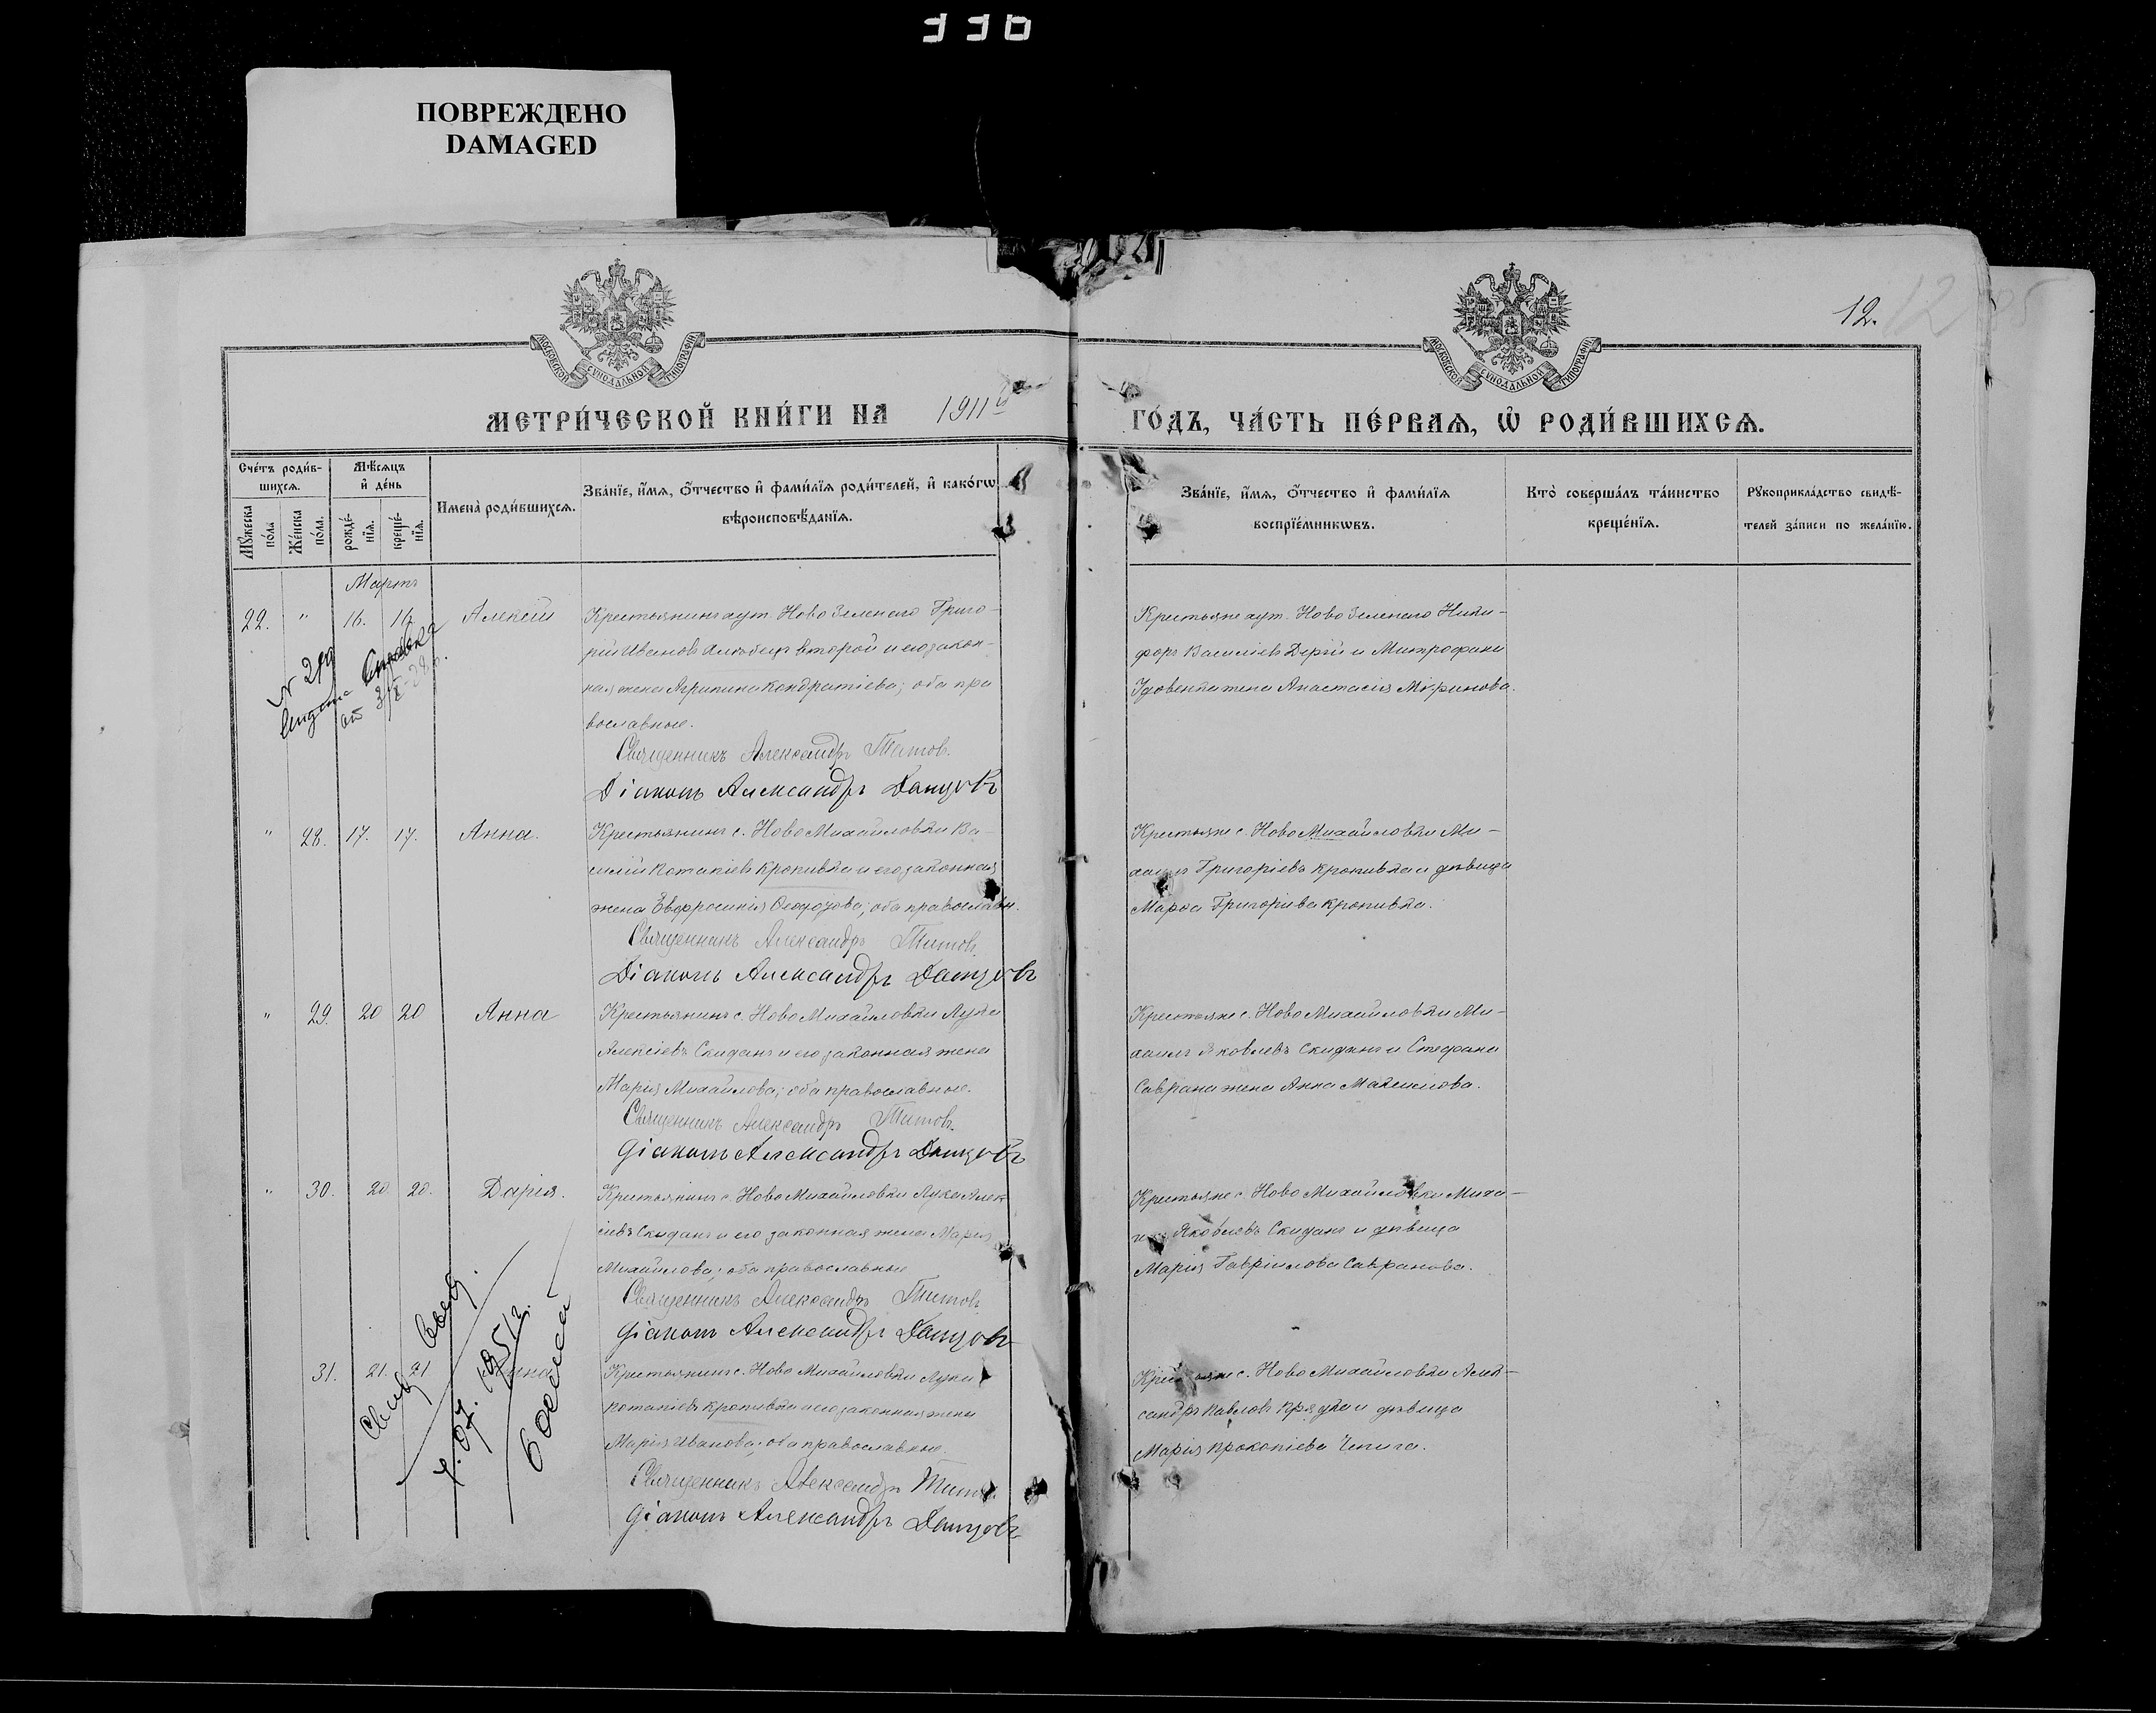 336
ПОВРЕЖДЕНО
DAMAGED
12.
12
МОСКОВСКОЙ СУНОДАЛЬНОЙ ТИПОГРАФІИ
МОСКОВСКОЙ СУНОДАЛЬНОЙ ТИПОГРАФІИ
МЕТРИ́ЧЕСКОЙ КНИ́ГИ НА 1911й
ГО́ДЪ, ЧА́СТЬ ПЕ́РВАѦ, Ѡ҆ РОДИ́ВШИХСѦ.
Сче́тъ роди́в-
шихсѧ.
Мꙋ́жеска по́ла
Же́нска по́ла.
Мѣ́сѧцъ
и҆ де́нь
рожде́-
нїѧ.
креще́-
нїѧ.
И҆мена̀ роди́вшихсѧ.
Зва́нїе, и҆́мѧ, ѻ҆́тчество и҆ фами́лїѧ роди́телей, и҆ како́гѡ
вѣроисповѣ́данїѧ.
Зва́нїе, и҆́мѧ, ѻ҆́тчество и҆ фами́лїѧ
воспрїе́мникѡвъ.
Кто̀ соверша́лъ та́инство
креще́нїѧ.
Рꙋкоприкла́дство свидѣ́-
телей за́писи по жела́нїю.
Мартъ
22. " 16. 16. Алексій
Крестьянинъ хут. Ново Зеленаго Григо-
рій Ивановъ второй и его закон-
ная жена Агрипина Кондратіева; оба пра
вославные.
Священникъ Александръ Титовъ.
Діаконъ Александръ Данцовъ
Крестьяне хут. Ново Зеленаго Ники-
форъ Василіевъ Дергій и Митрофана
Удовенка жена Анастасія
№ 219
Справка
" 28. 17. 17. Анна.
Крестьянинъ с. Ново Михайловки Ва-
силій Потапіевъ Кропивка и его законная
жена Евфросинія Ѳеодозова; оба православн.
Священникъ Александръ Титовъ
Діаконъ Александръ Данцовъ
Крестьяне с. Ново Михайловки Ми-
хаилъ Григоріевъ Кропивка и дѣвица
Марѳа Григоріева Кропивка.
" 29. 20 20 Анна
Крестьянинъ с. Ново Михайловки Лука
Алексіевъ Скиданъ и его законная жена
Марія Михайлова; оба православные.
Священникъ Александръ Титовъ.
Діаконъ Александръ Данцовъ
Крестьяне с. Ново Михайловки Ми-
хаилъ Яковлевъ Скиданъ и Стефана
Саврана жена Анна Макеимова.
" 30. 20. 20. Дарія.
Крестьянинъ с. Ново Михайловки Лука Алек
сіевъ Скиданъ и его законная жена Марія
Михайлова; оба православные
Священникъ Александръ Титовъ
Діаконъ Александръ Данцовъ
Крестьяне с. Ново Михайловки Миха-
Яковлевъ Скиданъ и дѣвица
Марія Гавріилова Савранова.
31. 21. 21
Крестьянинъ с. Ново Михайловки Лука
Потапіевъ Кропивка и его законная жена
Марія Иванова; оба православные.
Священникъ Александръ
Діаконъ Александръ Данцовъ
с. Ново Михайловки Алек-
сандръ Павловъ и дѣвица
Марія Прокопіева Чепига.